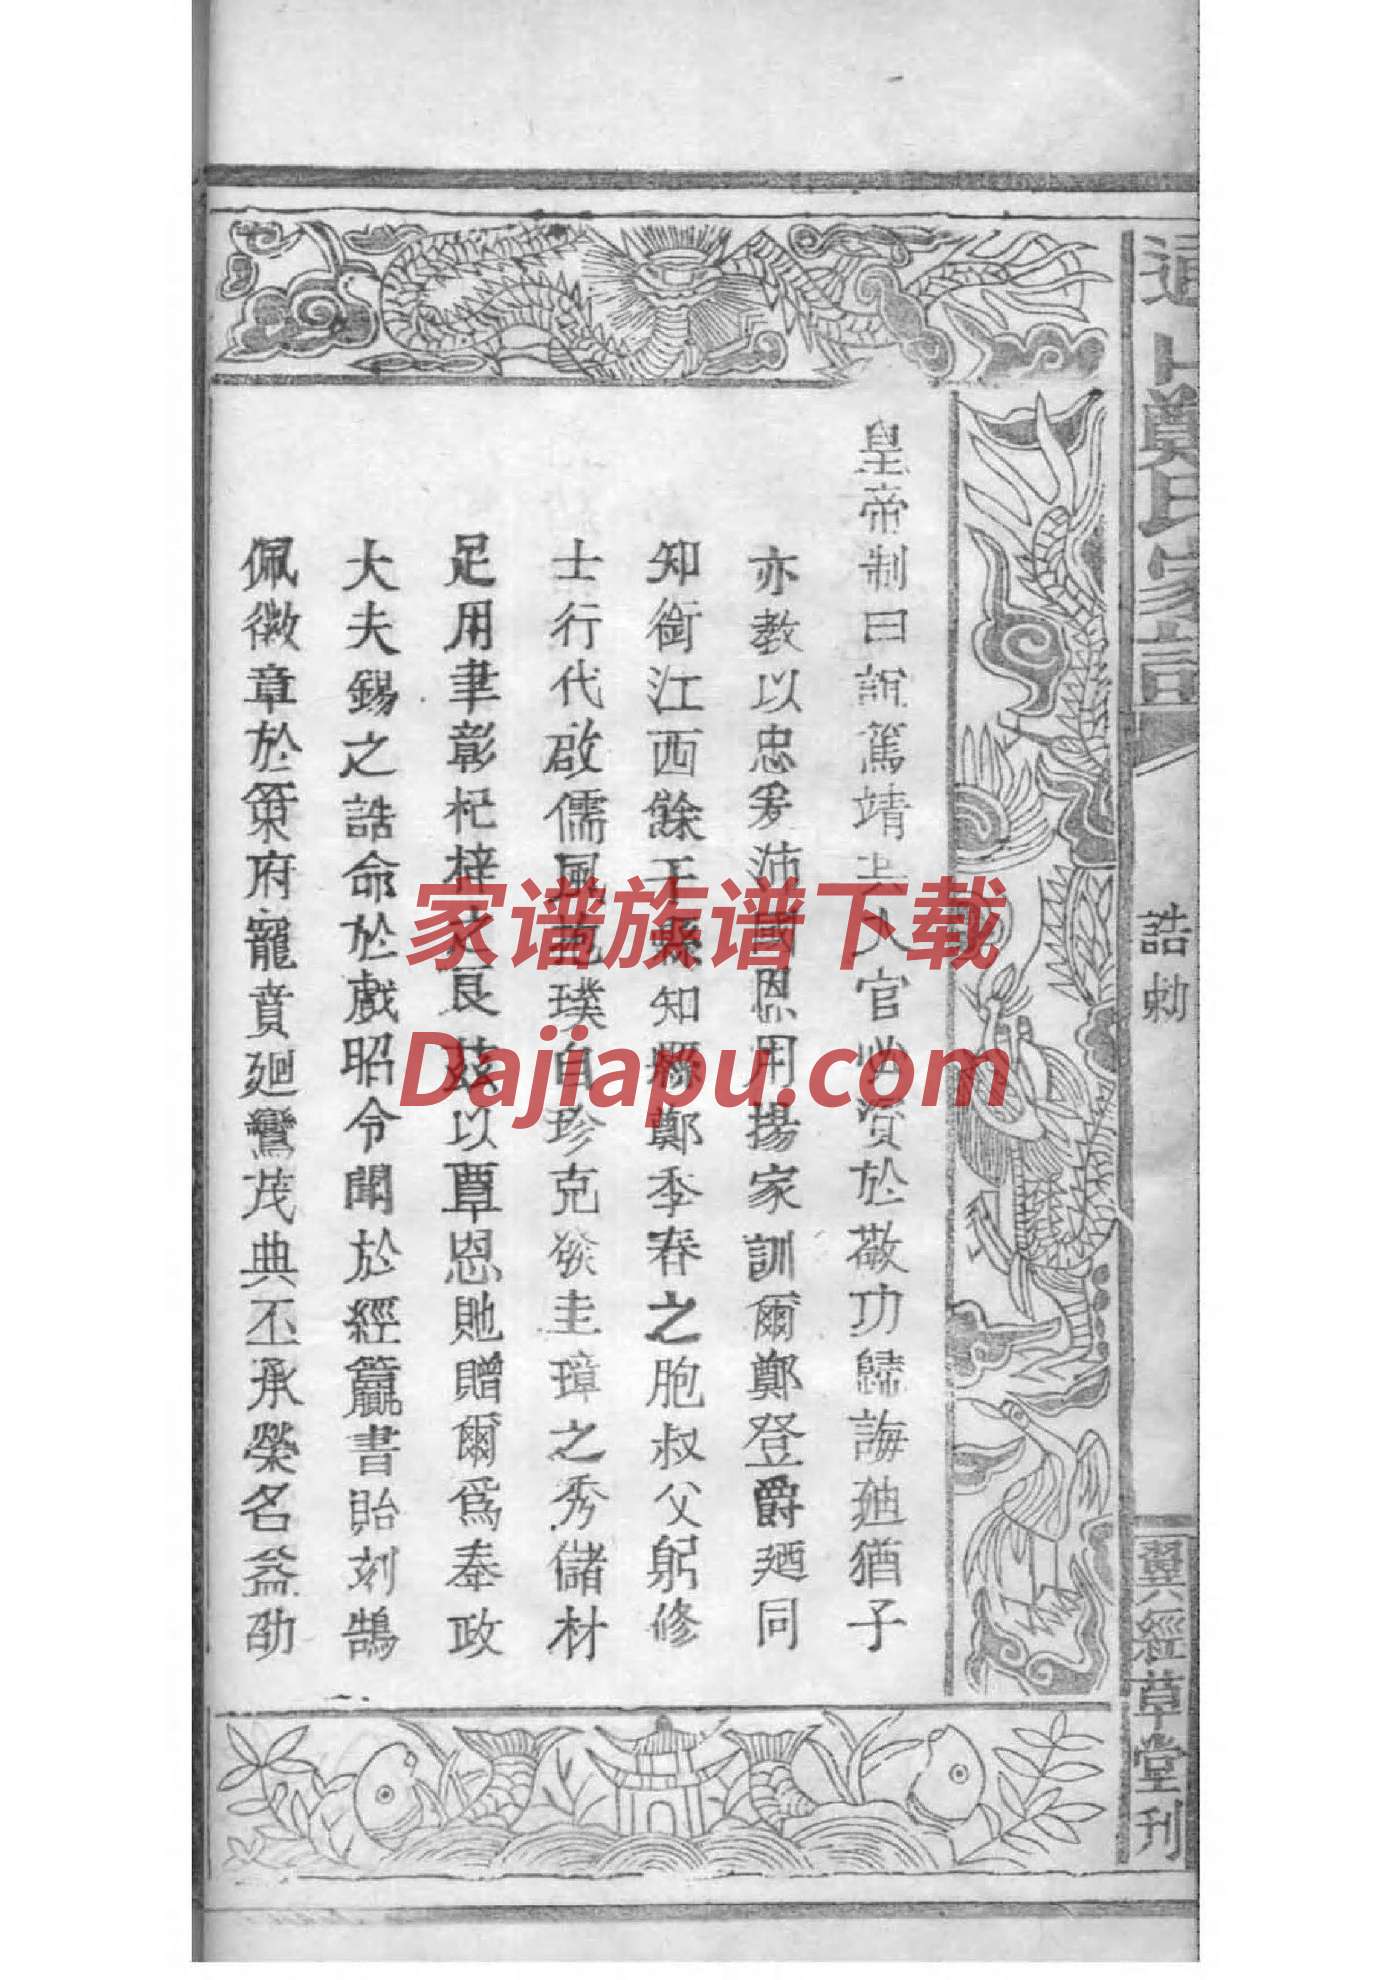 皇帝制曰誼篤靖共人官必資於敬功歸誨迪猶子
亦教以忠爰沛國恩用揚家訓爾鄭登爵廼同
知銜江西餘干縣知縣鄭季春之胞叔父躬修
士行代啟儒風㧞璞自珍克發圭璋之秀儲材
足用聿彰杞梓之良茲以覃恩貤贈爾爲奉政
大夫錫之誥命於戲昭令聞於經籯書貽刻鵠
佩徽章於策府寵賁廻鸞茂典丕承榮名益劭
鄭氏家譜
誥勅
翼經草堂刊
家谱族谱下载
Dajiapu.com